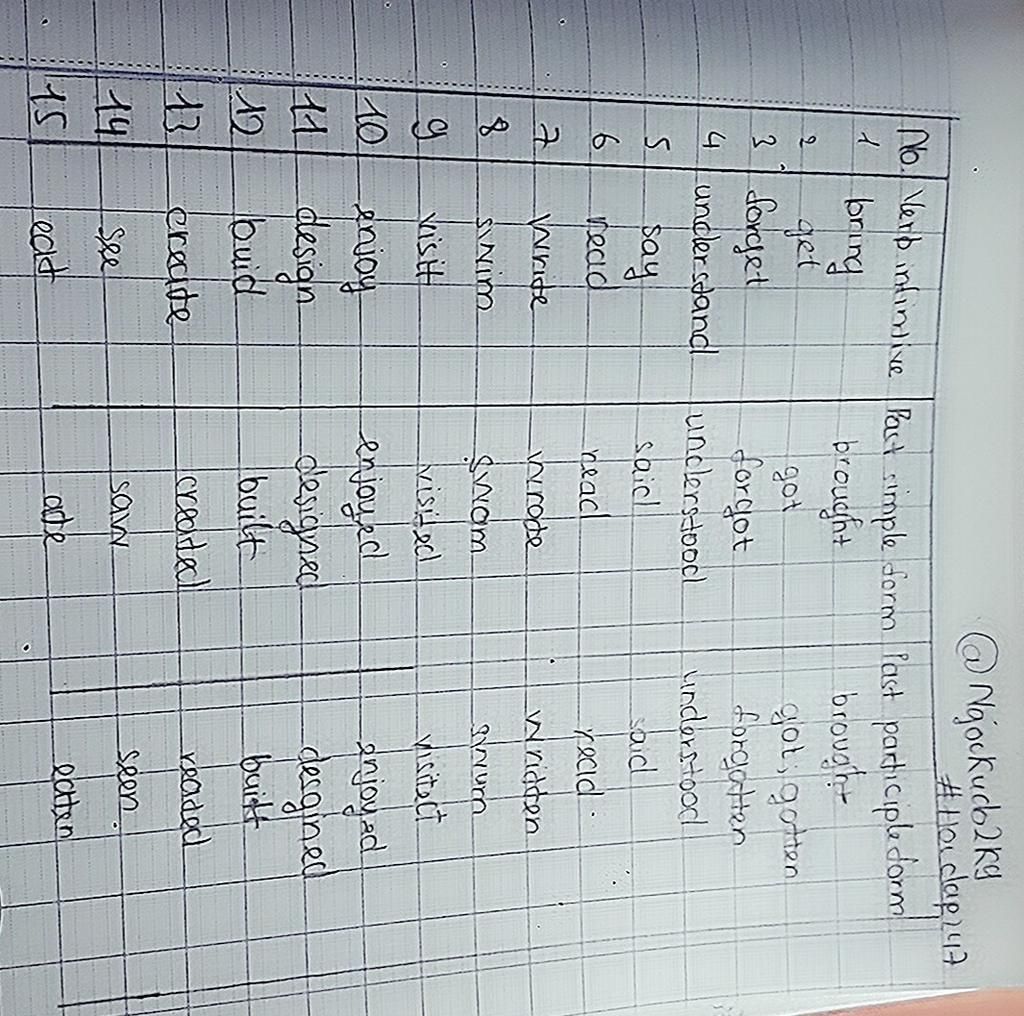 @Ngockucb2kg
#Hoidap247
No. Verb infintive Past simple form Past participle form
1 bring brought brought
2 get got got, gotten
3 forget forgot forgotten
4 understand understood understood
5 say said said
6 read read read
7 write wrote written
8 swim swam swum
9 visit visited visited
10 enjoy enjoyed enjoyed
11 design designed desgined
12 buid built built
13 create created reated
14 see saw seen
15 eat ate eaten